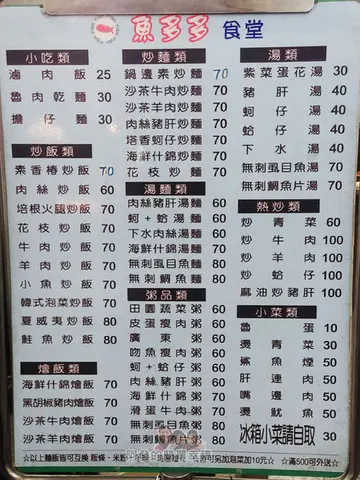 魚多多 食堂
小吃類
滷肉飯 25
魯肉乾麵 30
擔仔麵 30
炒飯類
素香椿炒飯 70
肉絲炒飯 60
培根火腿炒飯 70
花枝炒飯 70
牛肉炒飯 70
羊肉炒飯 70
小魚炒飯 70
韓式泡菜炒飯 70
夏威夷炒飯 80
鮭魚炒飯 80
燴飯類
海鮮什錦燴飯 70
黑胡椒豬肉燴飯 70
沙茶牛肉燴飯 70
沙茶羊肉燴飯 70
炒麵類
鍋邊素炒麵 70
沙茶牛肉炒麵 70
沙茶羊肉炒麵 70
肉絲豬肝炒麵 70
塔香蚵仔炒麵 70
海鮮什錦炒麵 70
花枝炒麵 70
湯麵類
肉絲豬肝湯麵 60
蚵+蛤湯麵 70
下水肉絲湯麵 70
海鮮什錦湯麵 70
無刺虱目魚麵 80
無刺鯛魚湯麵 80
粥品類
田園蔬菜粥 60
皮蛋瘦肉粥 60
廣東粥 60
吻魚瘦肉粥 60
蚵+蛤仔粥 60
海鮮什錦粥 70
滑蛋牛肉粥 70
無刺虱目魚粥 80
鯛魚片粥 80
湯類
紫菜蛋花湯 30
豬肝湯 40
蚵仔湯 40
蛤仔湯 40
下水湯 40
無刺虱目魚湯 70
無刺鯛魚片湯 70
熱炒類
炒青菜 60
炒牛肉 100
炒羊肉 100
炒蛤仔 100
麻油炒豬肝 100
小菜類
魯蛋 10
燙青菜 30
鯊魚煙 30
肝連肉 50
嘴邊肉 50
燙魷魚 50
冰箱小菜請自取 30
☆以上麵飯皆可互換 飯條、米粉 另可另加泡菜加10元☆ ☆滿500可外送☆